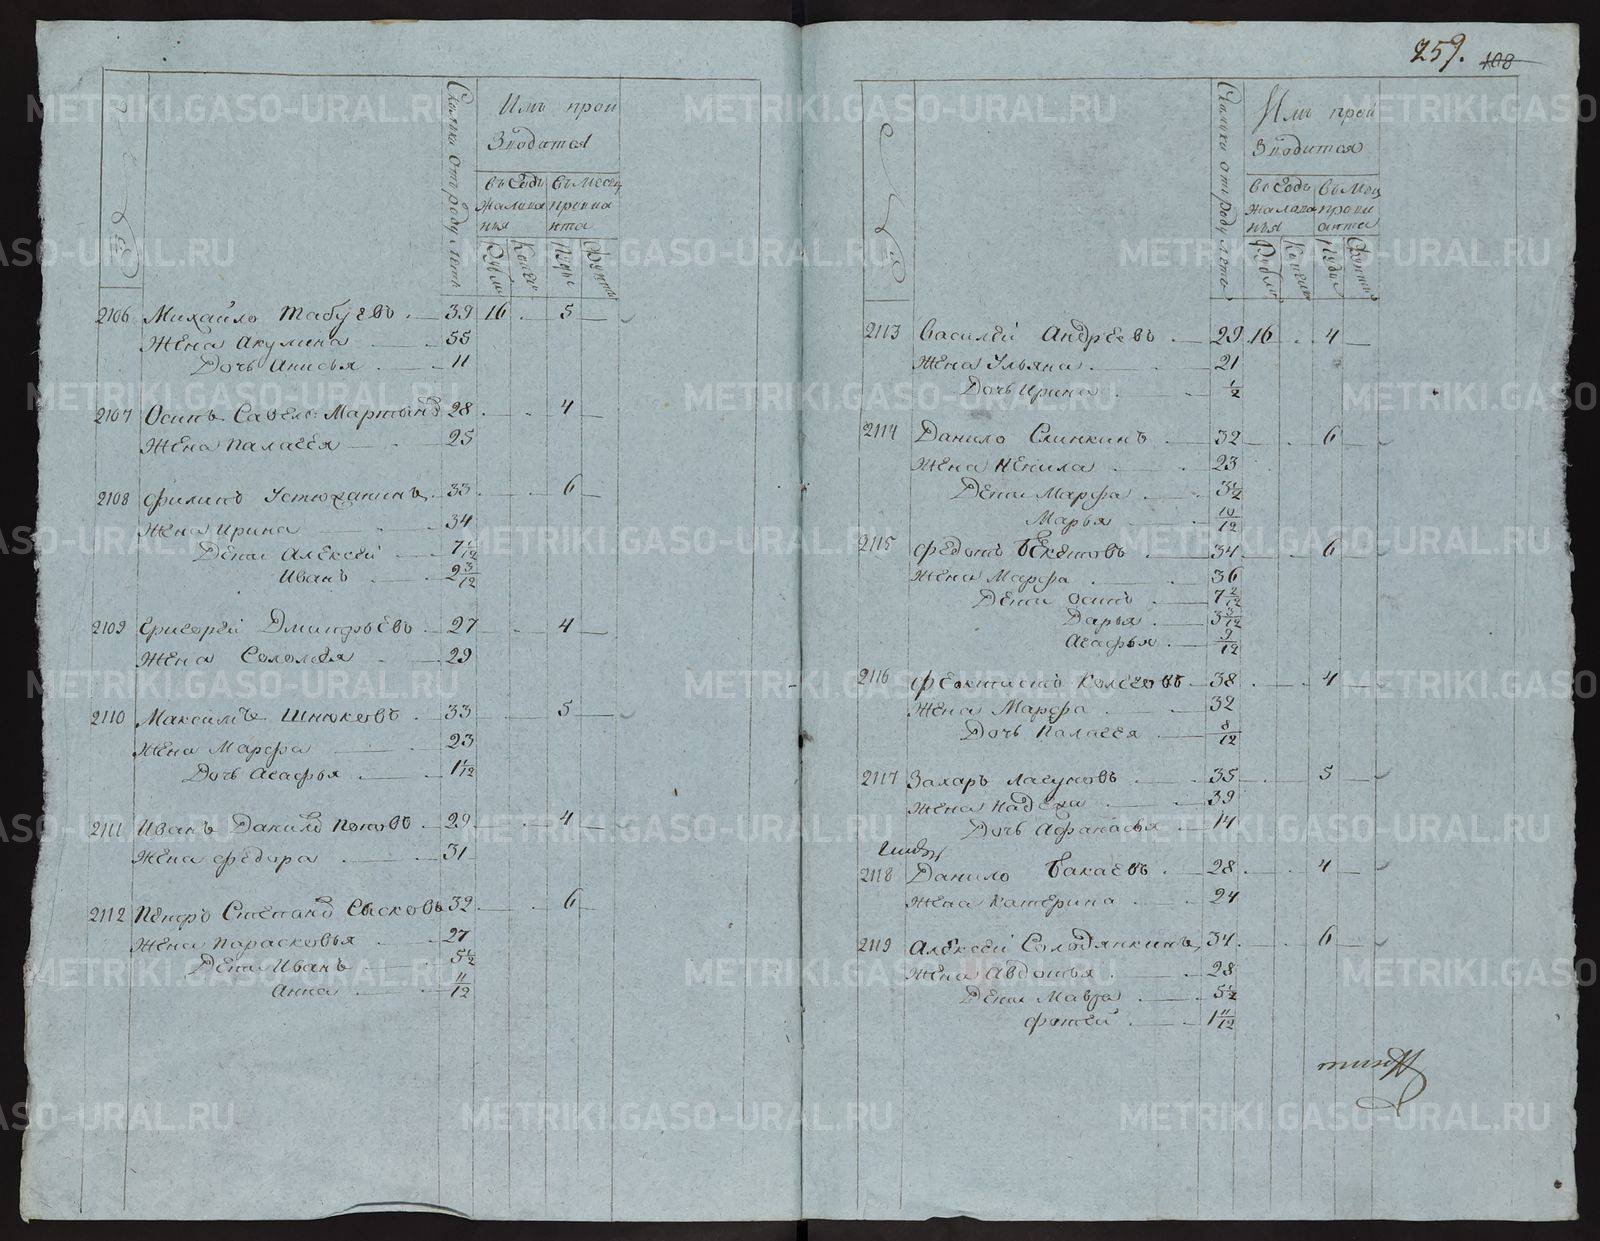 Сколько отъ роду летъ
Имъ прои
зводится
въ годъ жалованья
въ месяцъ провианта
Рубли
Копеи
Пуды
Фунты
2106 Михайло Табуевъ 39 16 5
Жена Акулина 55
Дочь Анисья 11
2107 Осипъ Савель: Мартын 28 4
Жена Палагея 25
2108 Филипъ Устюжанинъ 33 6
Жена Ирина 34
Дети Алексей 7
Иванъ 2 3/12
2109 Григорей Дмитрьевъ 27 4
Жена Соломея 29
2110 Максимъ Шнюковъ 33 5
Жена Марфа 23
Дочь Агафья 1 1/12
2111 Иванъ Данило Поповъ 29 4
Жена Федора 31
2112 Петръ Степано Сысковъ 32 6
Жена Парасковья 27
Дети Иванъ 5 1/2
Анна 11/12
259. 108
Сколько отъ роду лета
Имъ прои
зводится
въ годъ жалованья
въ месяцъ провианта
Рубли
Копеи
Пуды
Фунты
2113 Василей Андреевъ 29 16 4
Жена Ульяна 21
Дочь Ирина 1/2
2114 Данило Слинкинъ 32 6
Жена Ненила 23
Дети Марфа 3 1/2
Марья 10/12
2115 Федотъ Бекетовъ 34 6
Жена Марфа 36
Дети Осипъ 7 2/12
Дарья 3 3/12
Агафья 9/12
2116 Феоктистъ Колеговъ 38 4
Жена Марфа 32
Дочь Палагея 8/12
2117 Захаръ Лагуновъ 35 5
Жена Надежа 39
Дочь Афанасья 14
2118 Данило Бакаевъ 28 4
Жена Катерина 24
2119 Алексей Солодянкинъ 34 6
Жена Авдотья 28
Дети Мавра 5 1/2
Фотей 1 11/12
METRIKI.GASO-URAL.RU